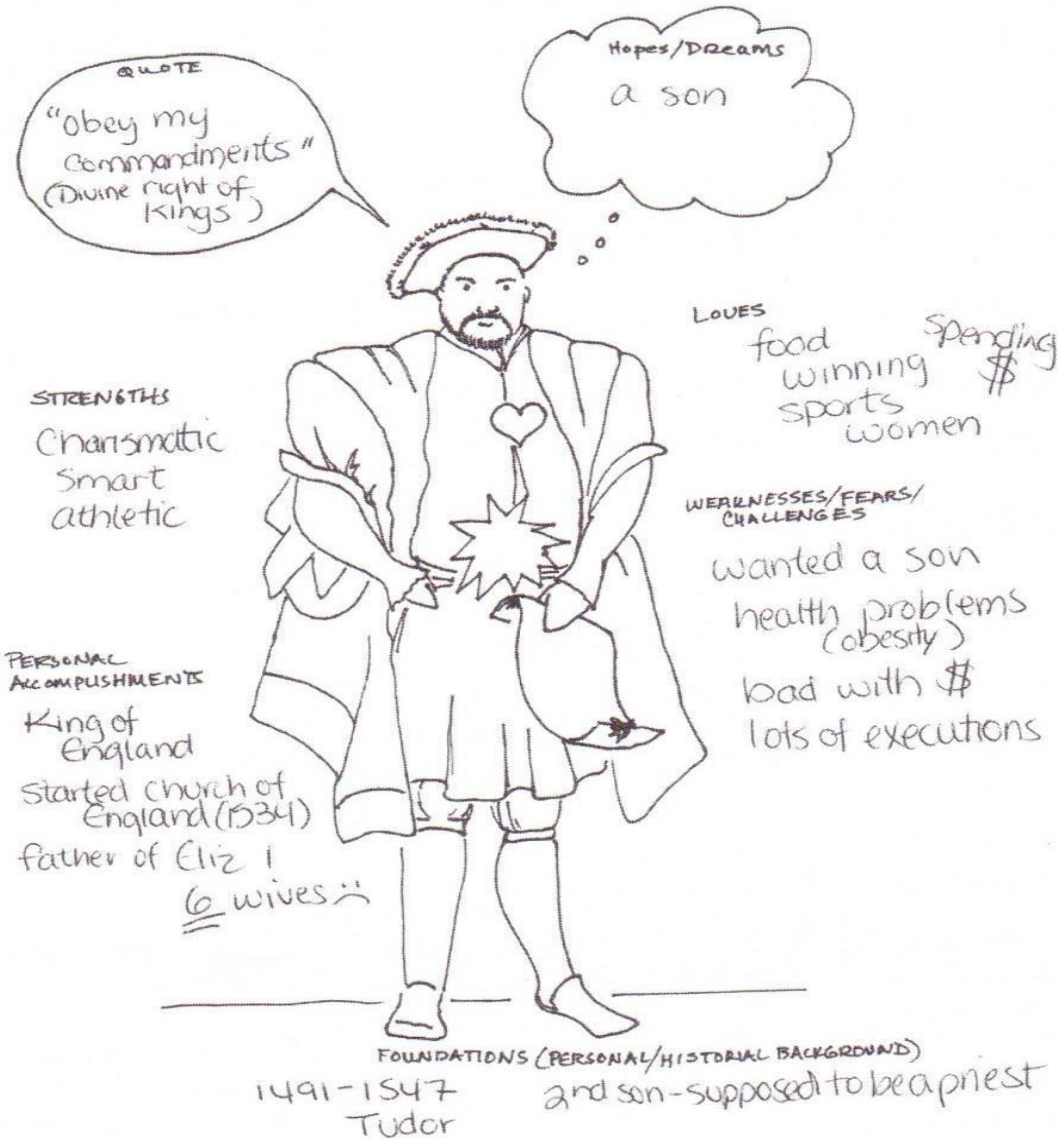 QUOTE
"Obey my
Commandments"
(Divine right of
Kings)
Hopes/Dreams
a son
LOVES
food
winning
sports
women
Spending
$
STRENGTHS
Charismatic
Smart
athletic
WEAKNESSES/FEARS/
CHALLENGES
wanted a son
health problems
(obesity)
bad with $
lots of executions
PERSONAL
ACCOMPLISHMENTS
King of
England
Started church of
England (1534)
father of Eliz I
6 wives :(
FOUNDATIONS (PERSONAL/HISTORIAL BACKGROUND)
1491-1547
Tudor
2nd son-supposed to be a priest